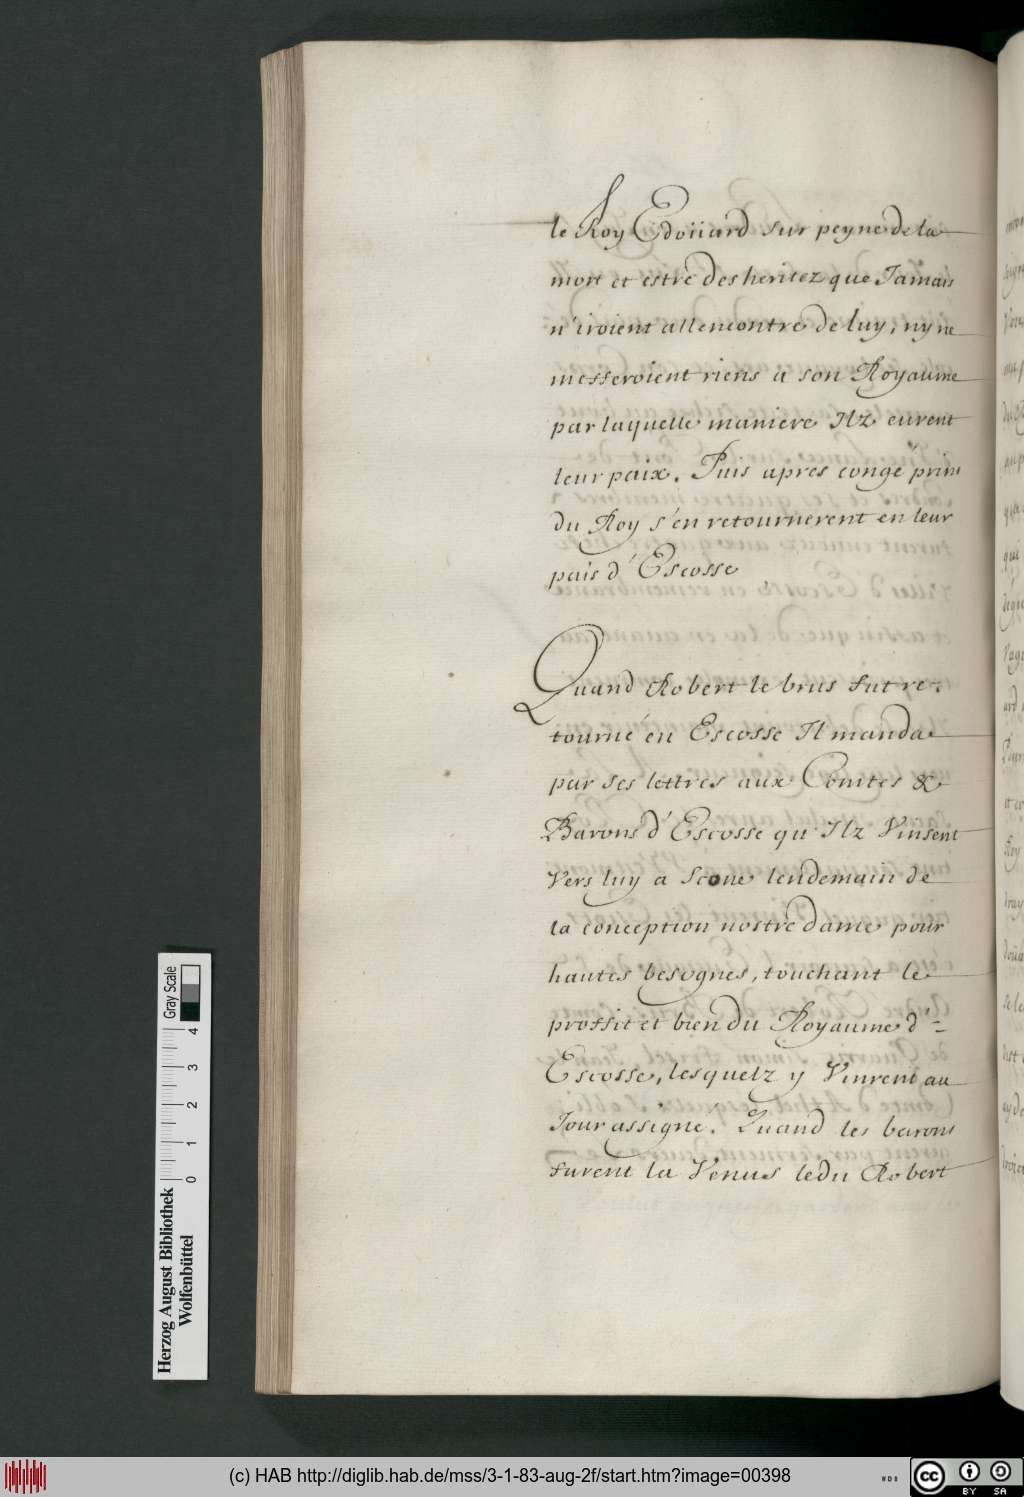 le Roy Edoüard sur peyne de la
mort et estre desheritez que Jamais
n'iroient allencontre de luy, ny ne
messeroient riens a son Royaume
par laquelle maniere Ilz eurent
leur paix. Puis apres congé prins
du Roy s'en retournerent en leur
païs d'Escosse
Quand Robert le brus fut re-
tourné en Escosse Il manda
par ses lettres aux Comtes &
Barons d'Escosse qu'Ilz Vinsent
Vers luy a Scone lendemain de
la conception nostre dame pour
hautes besognes, touchant le
proffit et bien du Royaume d'=
Escosse, lesquelz y Vinrent au
Jour assigne. Quand les barons
furent la Venus ledu Robert
Herzog August Bibliothek
Wolfenbüttel
0 1 2 3 4
Gray Scale
(c) HAB http://diglib.hab.de/mss/3-1-83-aug-2f/start.htm?image=00398
WDB
cc BY SA